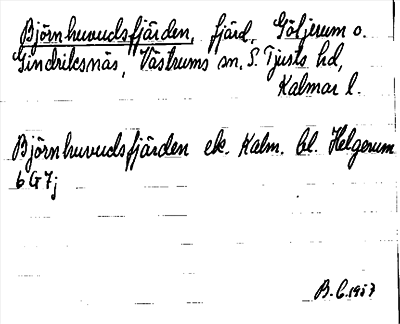 Björnhuvudsfjärden, fjärd, Göljerum o.
Gindriksnäs, Västrums sn, S. Tjusts hd,
Kalmar l.
Björnhuvudsfjärden ek. Kalm. bl. Helgerum
6G7j
B.C. 1957